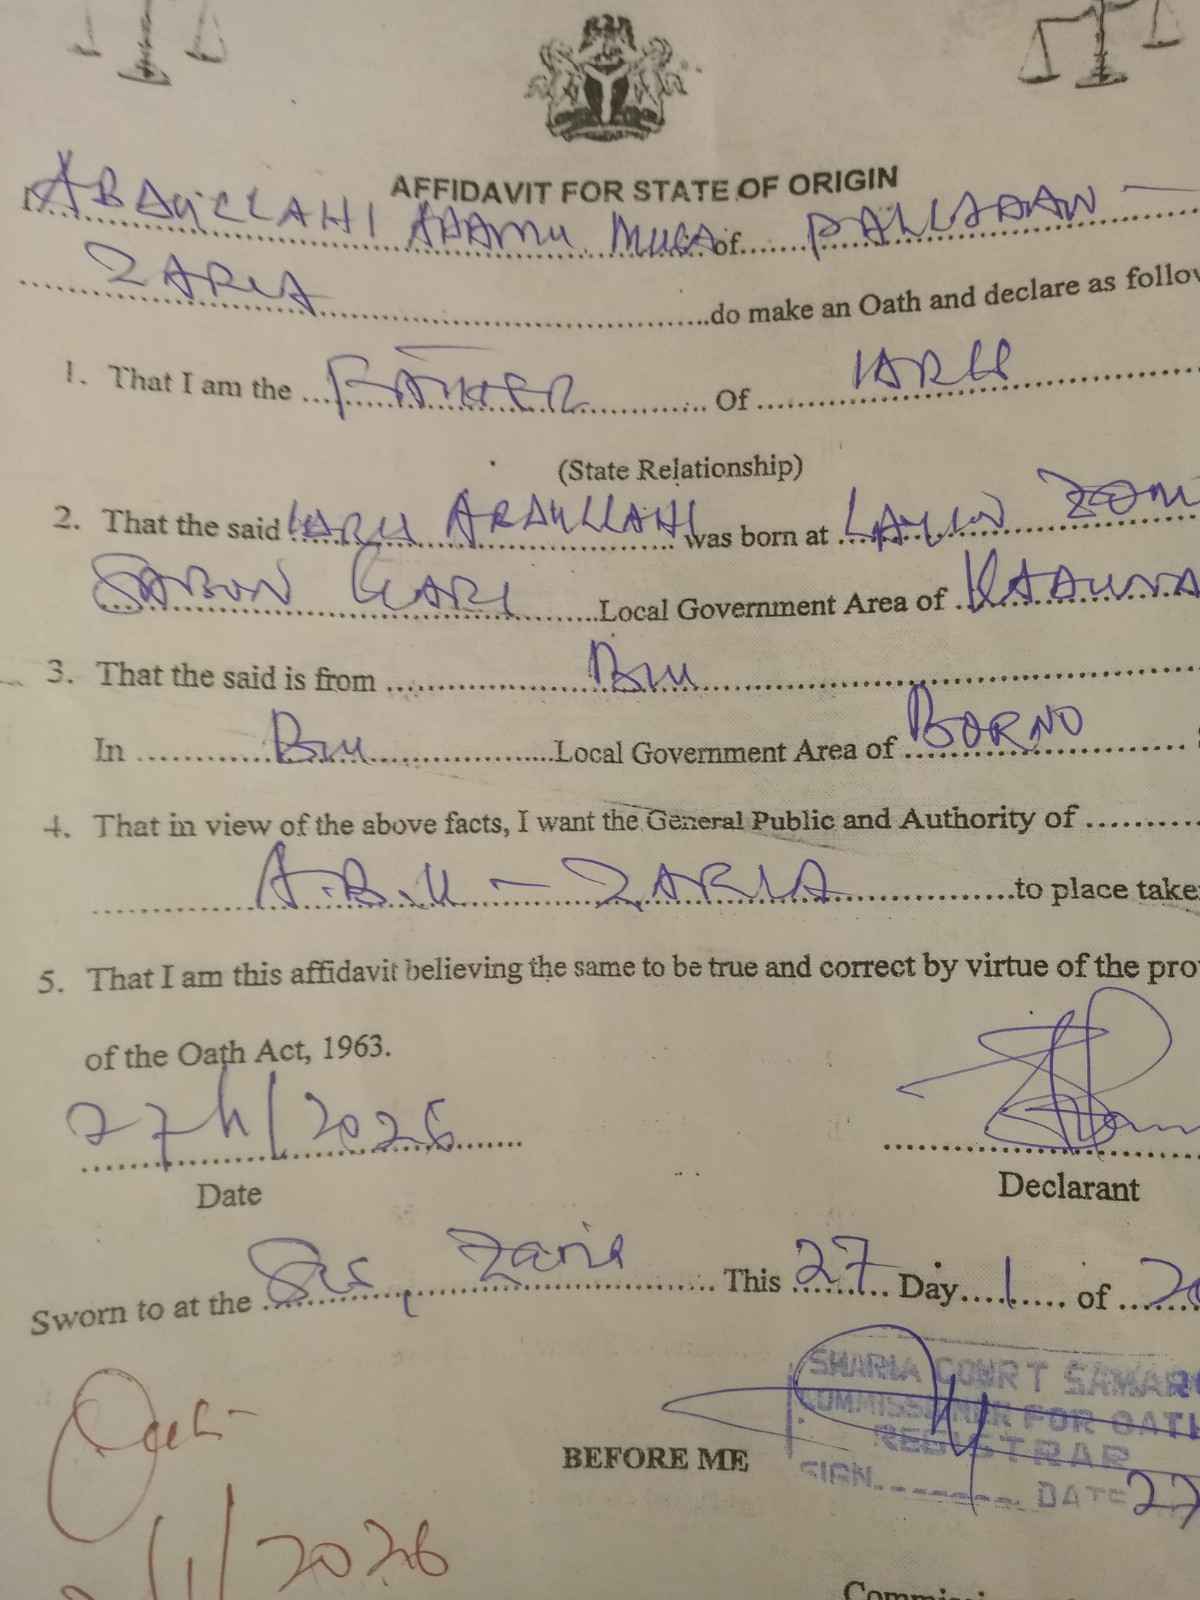 AFFIDAVIT FOR STATE OF ORIGIN
I ABDULLAHI ADAMU MUSA of
ZARIA do make an Oath and declare as follow
1. That I am the FATHER Of
(State Relationship)
2. That the said ABDULLAHI was born at LAYIN ZOM
SABON GARI Local Government Area of KADUNA
3. That the said is from BIU
In BIU Local Government Area of BORNO
4. That in view of the above facts, I want the General Public and Authority of
A.B.U - ZARIA to place take
5. That I am this affidavit believing the same to be true and correct by virtue of the pro
of the Oath Act, 1963.
27th/1/2026
Date Declarant
Sworn to at the Zaria This 27 Day 1 of 20
SHARIA COURT SAMAR
COMMISSIONER FOR OATH
REGISTRAR
BEFORE ME
SIGN DATE 27
/1/2026
Commis